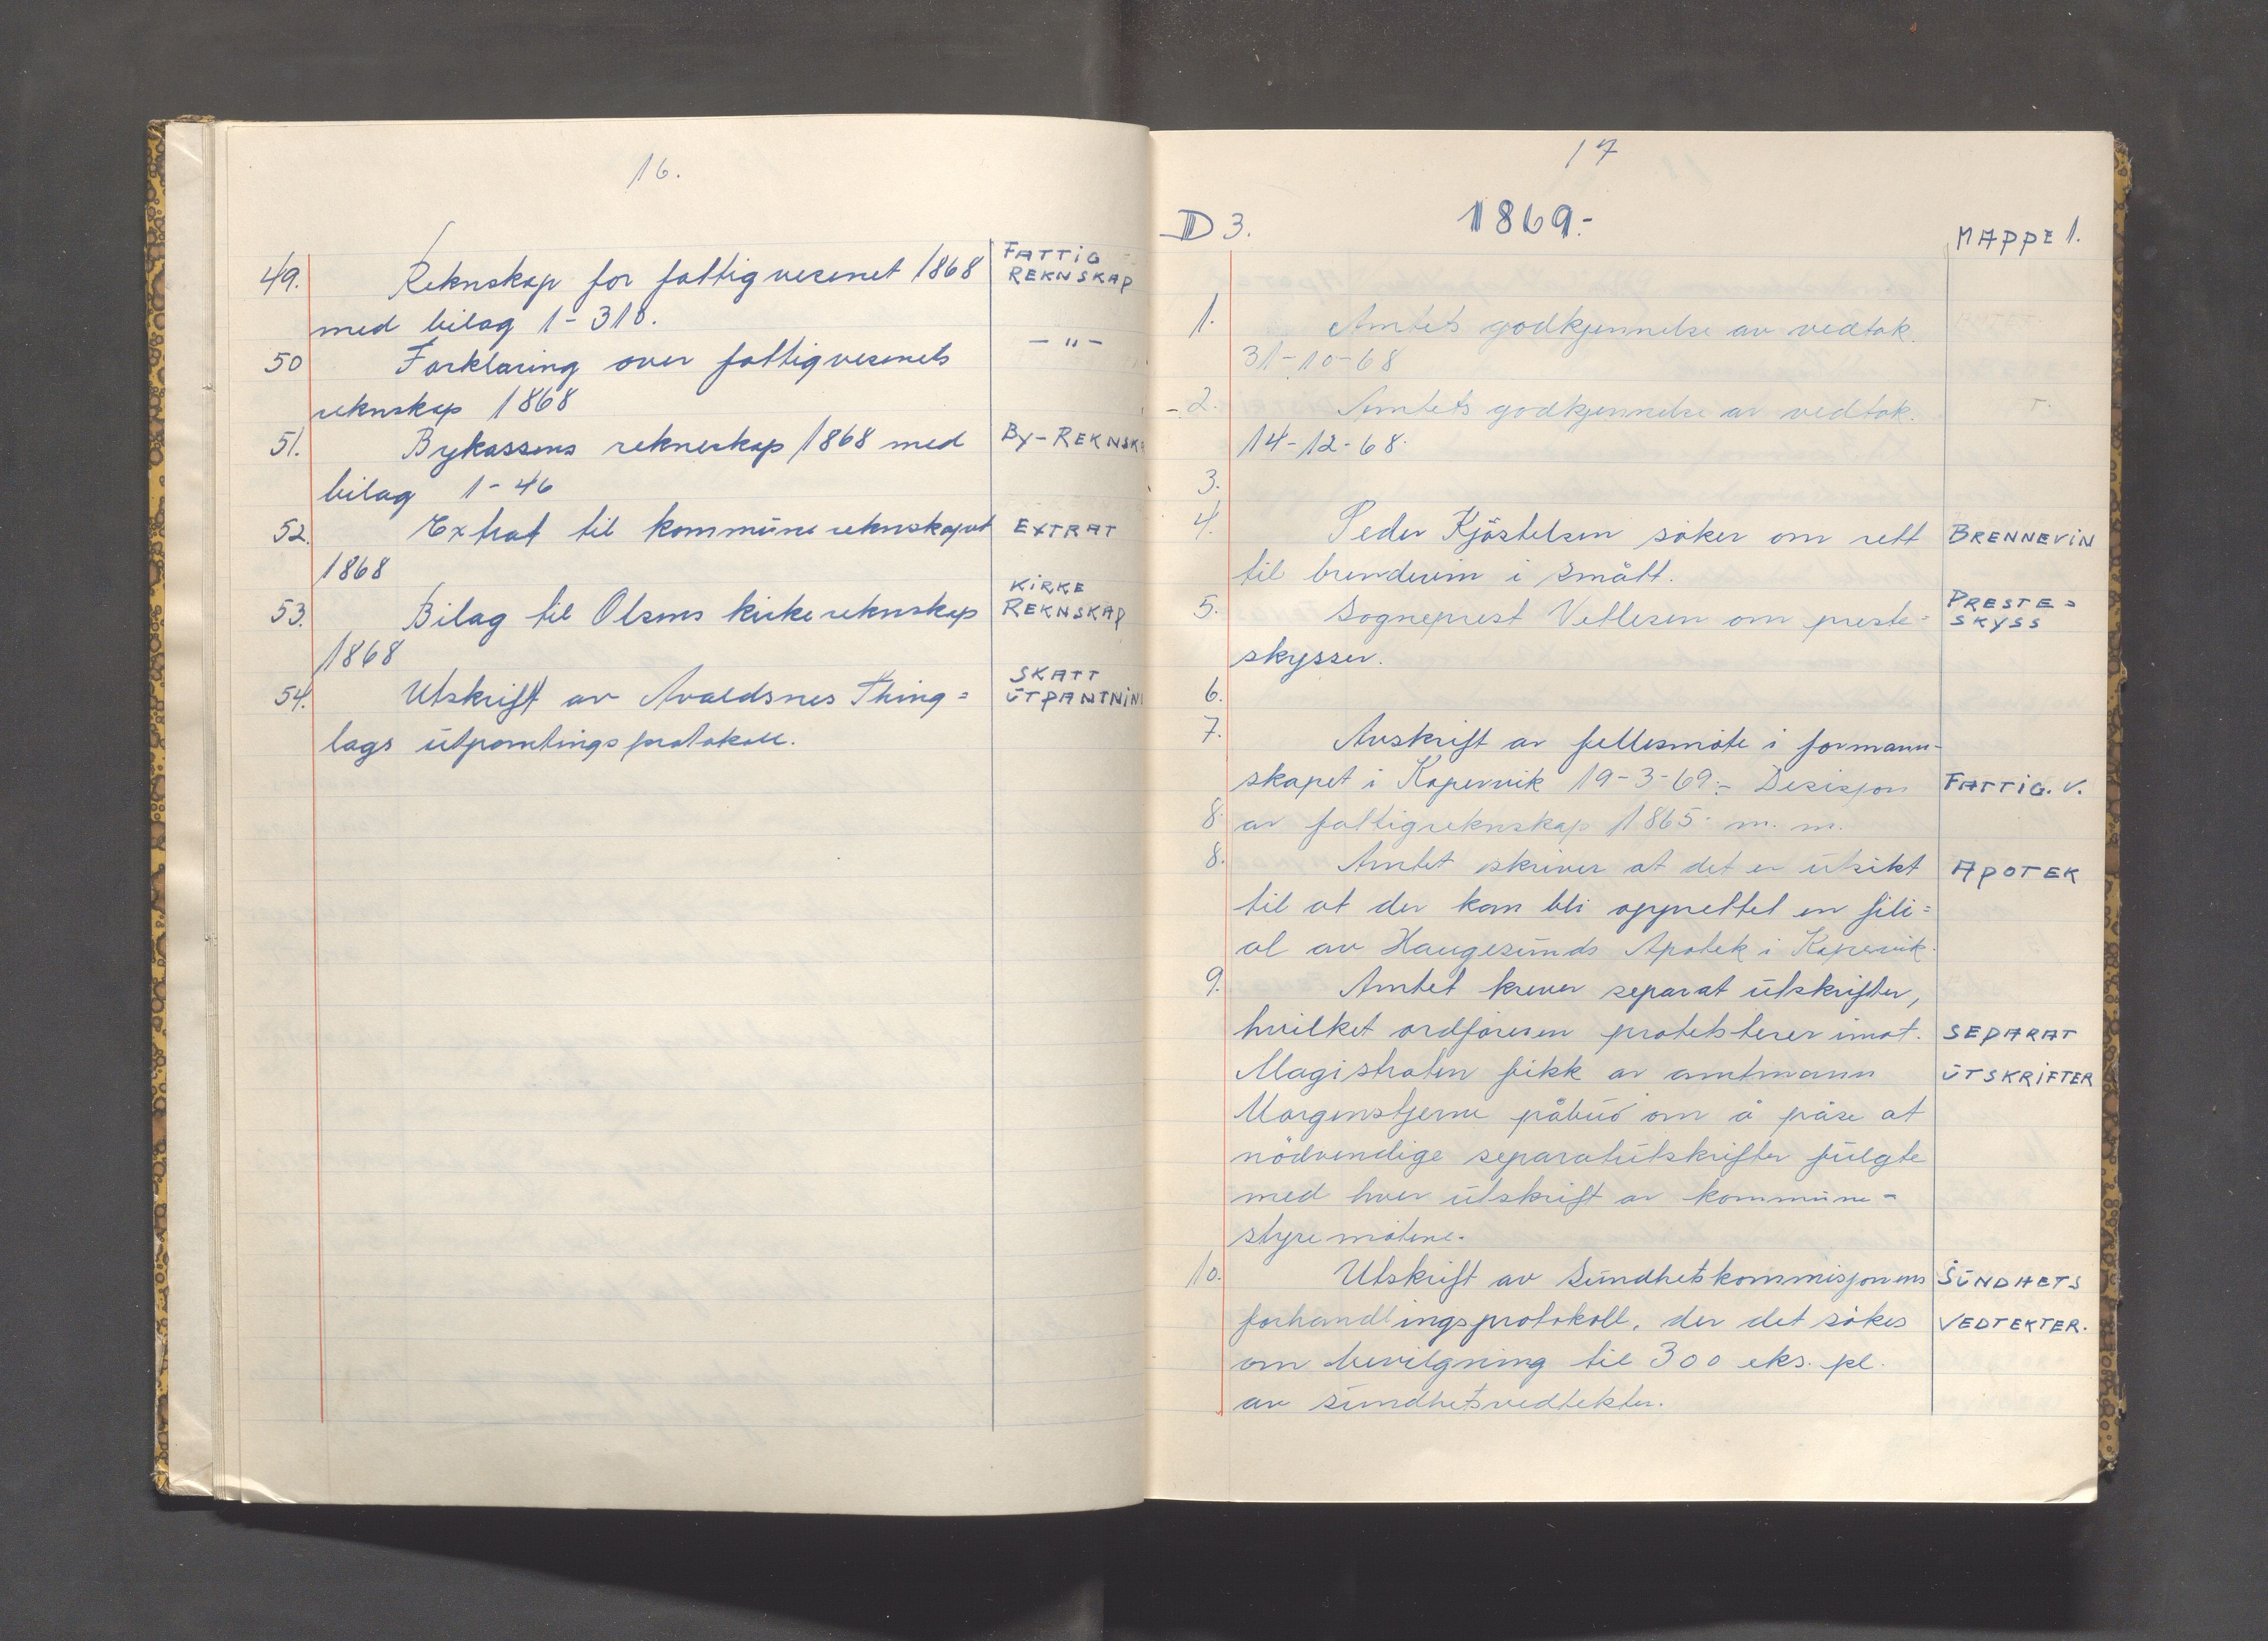 16.
49. Reknskap for fattigvesenet 1868 FATTIG
REKNSKAP
med bilag 1-318.
50 Forklaring over fattigvesenets - " -
reknskap 1868
51. Bykassens rekneskap 1868 med BY-REKNSKA
bilag 1-46
52. Extrat til kommunereknskapet EXTRAT
1868
53. Bilag til Olsens kirkereknskap KIRKE
REKNSKAP
1868
54. Utskrift av Avaldsnes Thing= SKATT
UTPANTNIN
lags utpantingsprotokoll.
17
D 3. 1869.- MAPPE 1.
1. Amtets godkjennelse av vedtak.
31-10-68
-2. Amtets godkjennelse av vedtak.
14-12-68.
3.
4. Peder Kjöstelsen söker om rett BRENNEVIN
til brendevin i smått.
5. Sogneprest Vetlesen om preste= PRESTE=
SKYSS
skysser.
6.
7. Avskrift av fellesmöte i formann-
skapet i Kopervik 19-3-69.- Desisjon FATTIG.V.
8. av fattigreknskap 1865 m. m.
8. Amtet skriver at det er utsikt APOTEK
til at der kan bli opprettet en fili=
al av Haugesunds Apotek i Kopervik.
9. Amtet krever separat utskrifter,
hvilket ordföreren protetsterer imot. SEPARAT
Magistraten fikk av amtmann UTSKRIFTER
Morgenstjerne påbud om å påse at
nödvendige separatutskrifter fulgte
med hver utskrift av kommune-
styremötene.
10. Utskrift av Sundhetskommisjonens SUNDHETS
forhandlingsprotokoll, der det sökes VEDTEKTER.
om bevilgning til 300 eks. pl.
av sundhetsvedtekter.